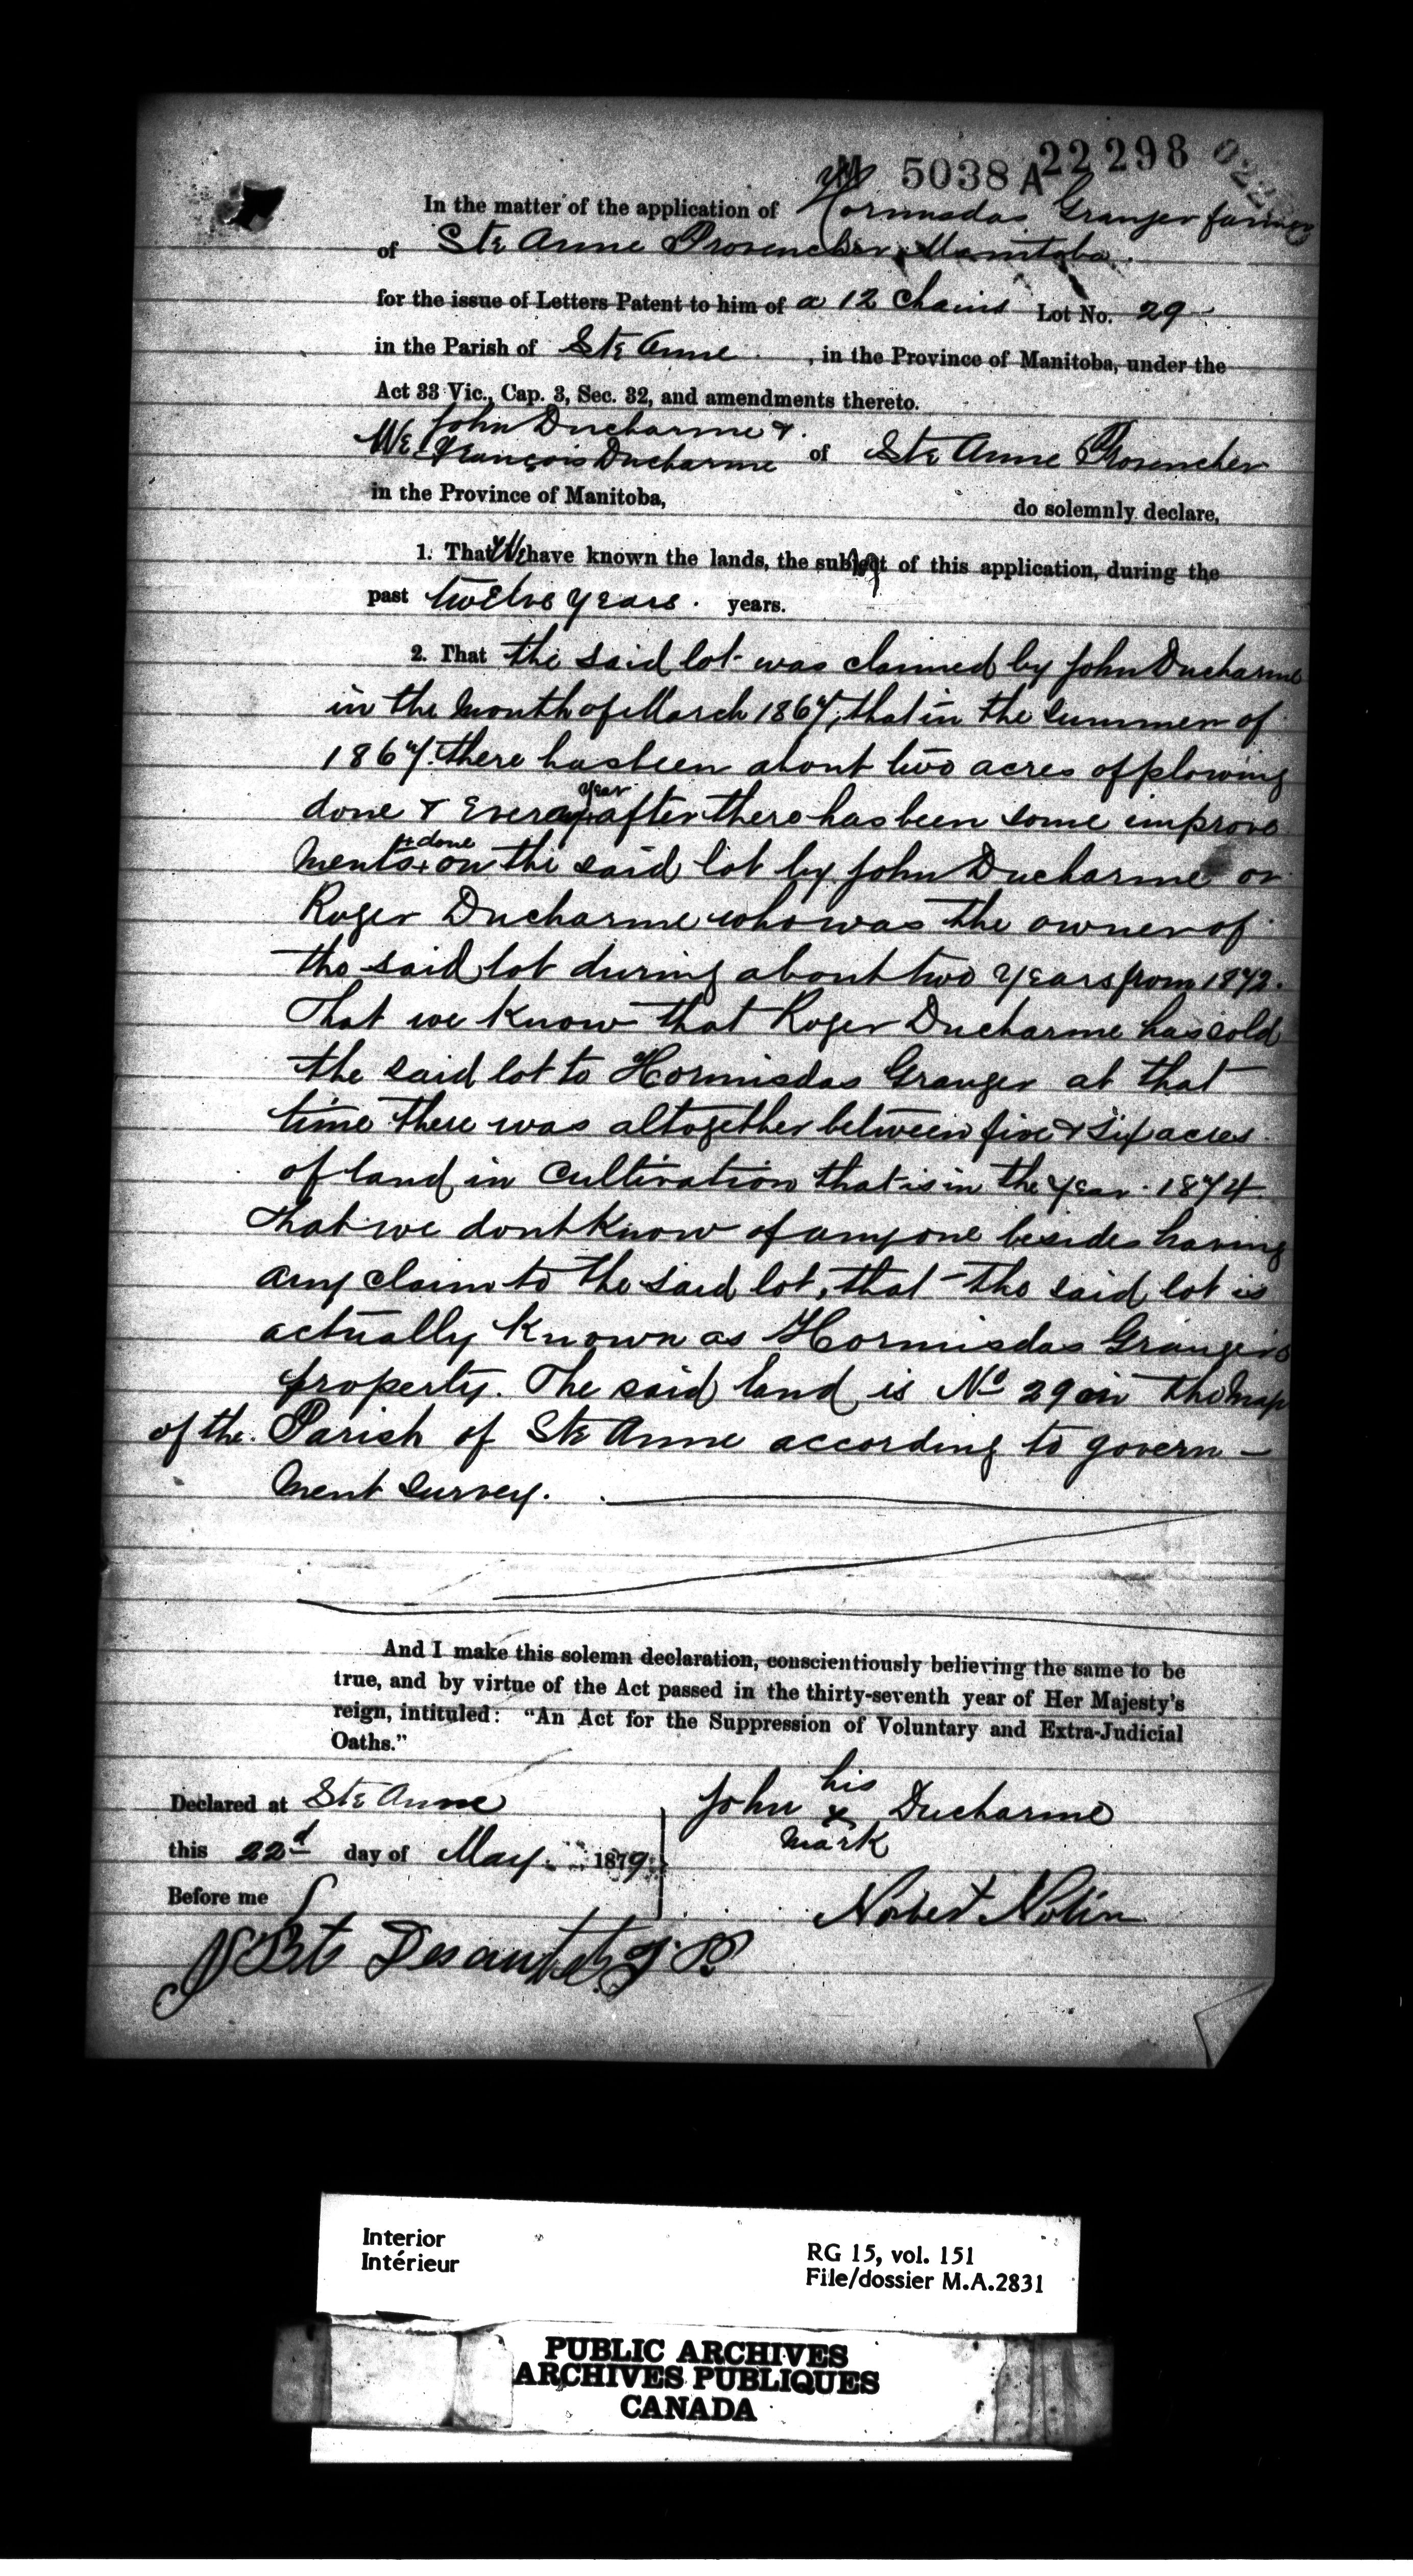 5038 A 22298
In the matter of the application of Hormisdas Granger farmer
of Ste Anne Provencher Manitoba.
for the issue of Letters Patent to him of a 12 Chains Lot No. 29
in the Parish of Ste Anne , in the Province of Manitoba, under the
Act 33 Vic., Cap. 3, Sec. 32, and amendments thereto.
John Ducharme &
We François Ducharme of Ste Anne Provencher
in the Province of Manitoba, do solemnly declare,
1. That We have known the lands, the subject of this application, during the
past twelve years. years.
2. That the said lot was claimed by John Ducharme
in the Month of March 1867, that in the summer of
1867. there has been about two acres of plowing
year
done & every after there has been some improve
+ done
ments + on the said lot by John Ducharme or
Roger Ducharme who was the owner of
the said lot during about two years from 1872.
That we know that Roger Ducharme has sold
the said lot to Hormisdas Granger at that
time there was altogether between five & six acres
of land in cultivation that is in the year 1874
that we dont know of anyone besides having
any claim to the said lot, that the said lot is
actually known as Hormisdas Granger's
property. The said land is No 29 on the Map
of the Parish of Ste Anne according to govern-
ment survey.
And I make this solemn declaration, conscientiously believing the same to be
true, and by virtue of the Act passed in the thirty-seventh year of Her Majesty's
reign, intituled: "An Act for the Suppression of Voluntary and Extra-Judicial
Oaths."
Declared at Ste Anne
this 22d day of May 1879
Before me
his
John x Ducharme
mark
Norbert Nolin
JBte Desautels J.P.
Interior
Intérieur
RG 15, vol. 151
File/dossier M.A.2831
PUBLIC ARCHIVES
ARCHIVES PUBLIQUES
CANADA